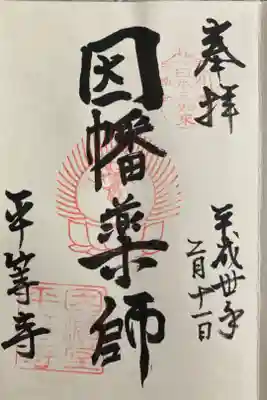 奉拝
平成卅年
二月十一日
因幡薬師
平等寺